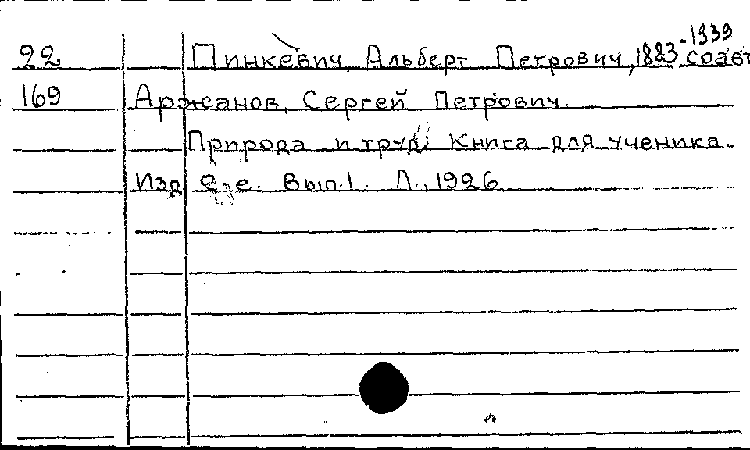 22 Пинкевич, Альберт Петрович, 1883-1939 соавт
169 Аржанов, Сергей Петрович.
Природа и труд. Книга для ученика.
Изд 2-е. Вып.1. Л., 1926